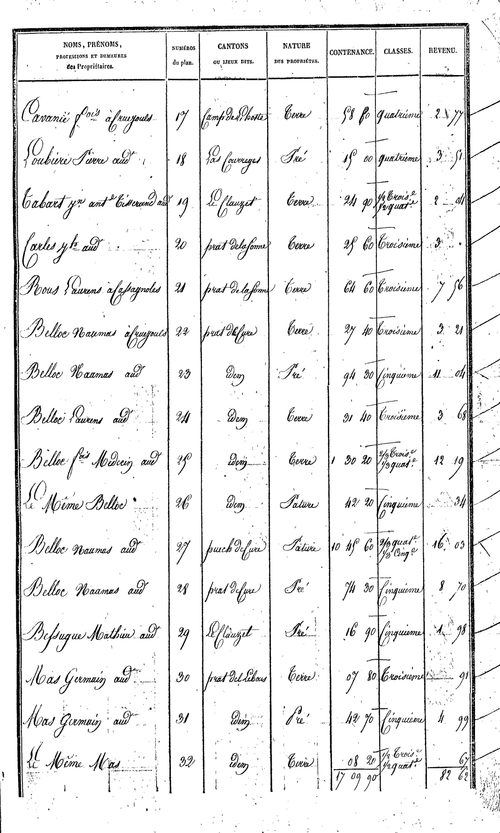 NOMS, PRÉNOMS, PROFESSIONS ET DEMEURES des Propriétaires. NUMÉROS du plan. CANTONS OU LIEUX DITS. NATURE DES PROPRIÉTÉS. CONTENANCE. CLASSES. REVENU.
Cavanié fçois à Cruejouls 17 Camp del Poste Terre 58 80 quatrième 2 77
Loubiere Pierre aud 18 Las Courreges Pré 15 00 quatrième 3 51
Tabart yn ant aud 19 Le Clauzet Terre 24 90 1/2 Trois.e 1/2 quat.e 2 04
Carles aud 20 prat de la fonne Terre 25 60 Troisieme 3
Rous Laurens à Cassagnoles 21 prat de la fonne Terre 64 60 Troisieme 7 56
Belloc Naumas à Cruejouls 22 prat de Cure Terre 27 40 Troisieme 3 21
Belloc Naamas aud 23 idem Pré 94 30 Cinquieme 11 04
Belloc Laurens aud 24 idem Terre 31 40 Troisieme 3 68
Belloc fçois Médecin aud 25 idem Terre 1 30 20 2/3 Trois.e 1/3 quat.e 12 19
Le Même Belloc 26 idem Pature 42 20 Cinquieme 34
Belloc Naumas aud 27 puech de Cure Pature 10 45 60 2/3 quat.e 1/3 Cinq.e 16 03
Belloc Naamas aud 28 prat de Cure Pré 74 30 Cinquieme 8 70
Bessugue Mathieu aud 29 Le Clauzet Pré 16 90 Cinquieme 1 98
Mas Germain aud 30 prat del Terre 07 80 Troisieme 91
Mas Germain aud 31 idem Pré 42 70 Cinquieme 4 99
Le Même Mas 32 idem Terre 08 20 1/2 Trois.e 1/2 quat.e 67
17 09 90 82 62